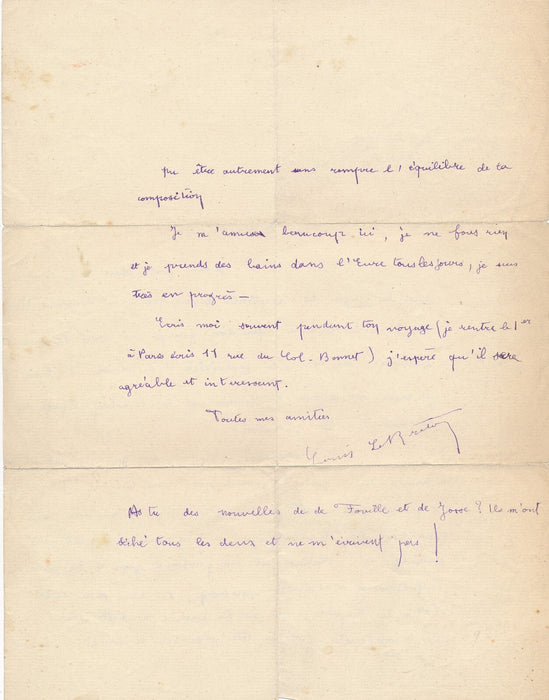 pu être autrement sans rompre l'équilibre de ta
composition
Je m'amuse beaucoup ici, je ne fous rien
et je prends des bains dans l'Eure tous les jours, je suis
très en progrès —
Ecris moi souvent pendant ton voyage (je rentre le 1er
à Paris écris 11 rue du Col-Bonnet) j'espère qu'il sera
agréable et interessant.
Toutes mes amitiés
Louis Le Breton
As tu des nouvelles de de Foville et de ? Ils m'ont
séché tous les deux et ne m'écrivent pas !